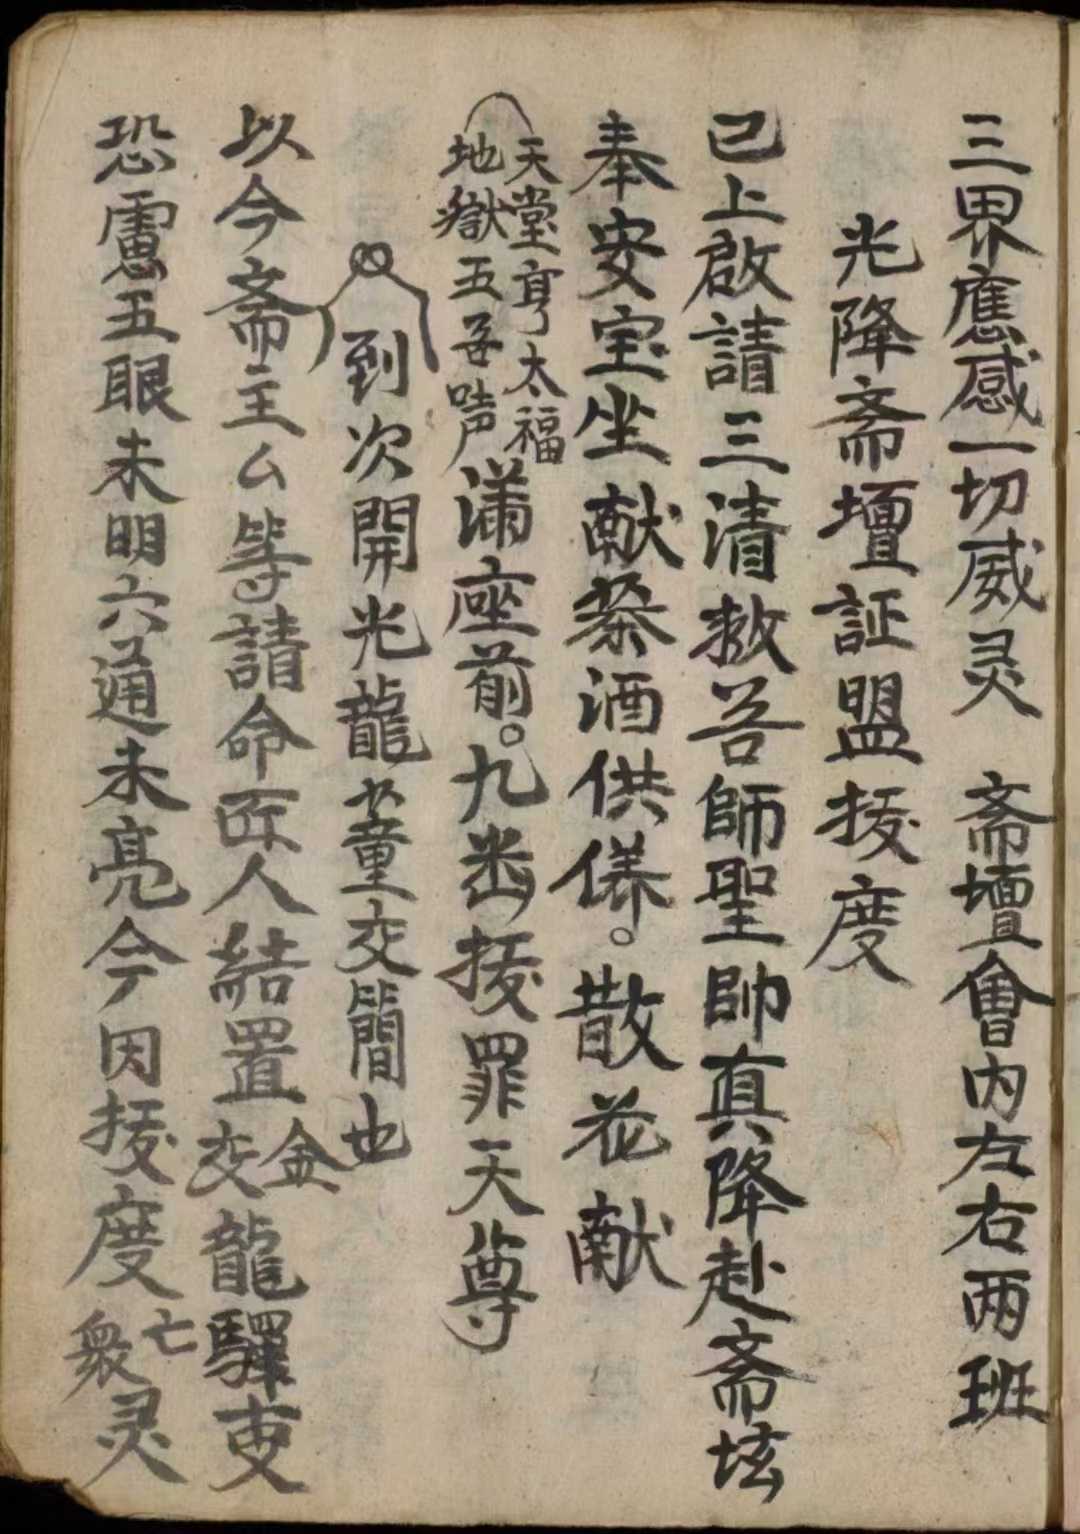 三界應感一切威灵　斋壇會內左右两班
光降斋壇証盟拔度
已上啟請三清救苦師聖帥真降赴斋坛
奉安宝坐献茶酒供俻。散花献
天堂享太福
地獄五吾唛声
满座前。九幽拔罪天尊
到次開光龍童交簡也
以今斋主厶等請命匠人結置金交龍驛吏
恐慮五眼未明六通未亮今因拔度亡衆灵